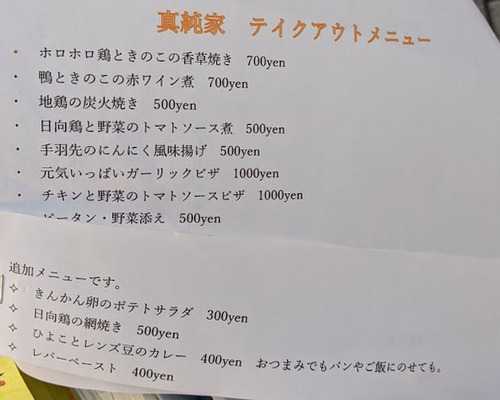 真純家 テイクアウトメニュー
・ ホロホロ鶏ときのこの香草焼き 700yen
・ 鴨ときのこの赤ワイン煮 700yen
・ 地鶏の炭火焼き 500yen
・ 日向鶏と野菜のトマトソース煮 500yen
・ 手羽先のにんにく風味揚げ 500yen
・ 元気いっぱいガーリックピザ 1000yen
・ チキンと野菜のトマトソースピザ 1000yen
・ ピータン・野菜添え 500yen
追加メニューです。
✧ きんかん卵のポテトサラダ 300yen
✧ 日向鶏の網焼き 500yen
✧ ひよことレンズ豆のカレー 400yen おつまみでもパンやご飯にのせても。
✧ レバーペースト 400yen